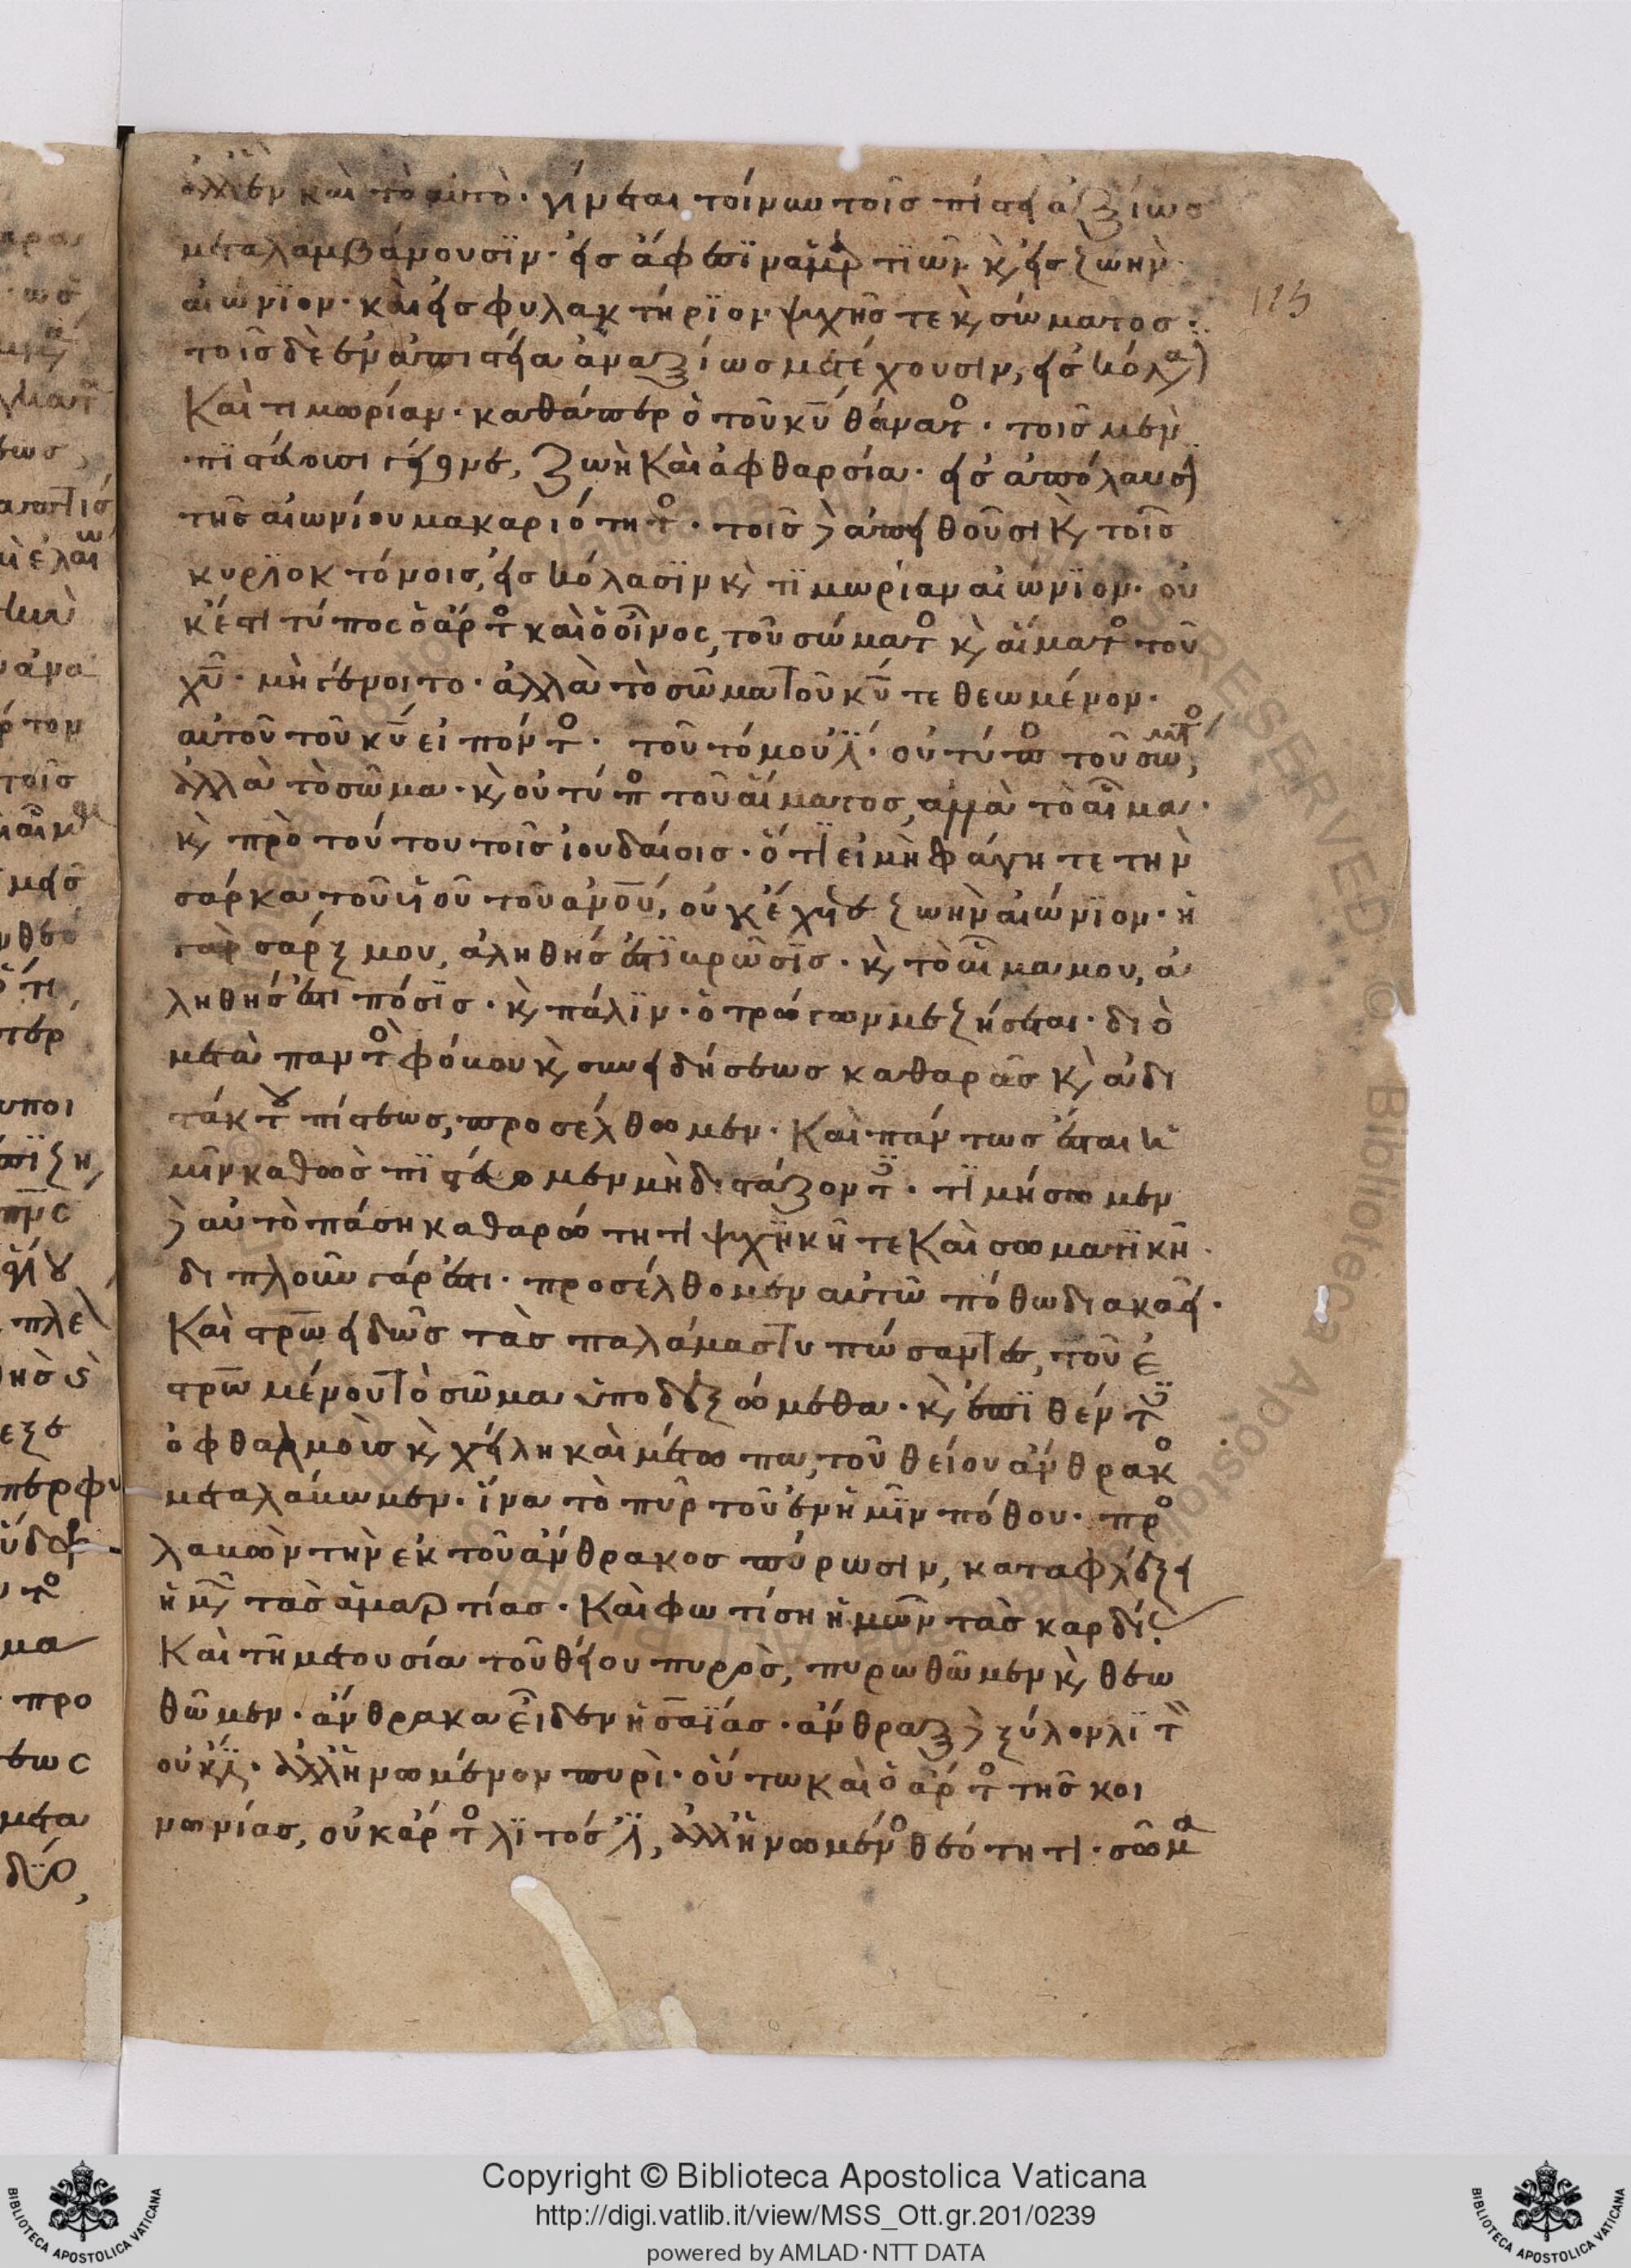 ἀλλ' ἓν καὶ τὸ αὐτὸ· γίνεται τοίνυν τοῖς πίστει ἀξίως
μεταλαμβάνουσϊν· εἰς ἄφεσϊν ἁμαρτϊῶν κ(αὶ) εἰς ζωὴν
αἰώνϊον· καὶ εἰς φυλακτήρϊον ψυχῆς τε κ(αὶ) σώματος·
τοῖς δὲ ἐν ἀπιστεία ἀναξίως μετέχουσιν, εἰς κόλα(σιν)
Καὶ τιμωρίαν· καθάπερ ὁ τοῦ κυ θάνατος· τοῖς μὲν
πϊστεύουσι γέγονε, ζωὴ Καὶ ἀφθαρσία· εἰς ἀπόλαυσιν
τῆς αἰωνίου μακαριότητος· τοῖς δὲ ἀπειθοῦσι κ(αὶ) τοῖς
κυρϊοκτόνοις, εἰς κόλασϊν κ(αὶ) τϊμωρίαν αἰώνϊον· οὐ
κέστι τύπος ὁ ἄρτος καὶ ὁ οἶνος, τοῦ σώματος κ(αὶ) αἵματος τοῦ
χυ· μὴ γένοιτο· ἀλλὰ τὸ σῶμα τοῦ κυ τεθεωμένον·
αὐτοῦ τοῦ κυ εἰπόντος· τοῦτό μου ἐστί· οὐ τύπος τοῦ σώματος,
ἀλλὰ τὸ σῶμα· κ(αὶ) οὐ τύπος τοῦ αἵματος, ἀλλὰ τὸ αἷμα·
κ(αὶ) πρὸ τούτου τοῖς ἰουδαίοις· ὅτι εἰ μὴ φάγητε τὴν
σάρκα τοῦ υἱοῦ τοῦ ανου, οὐκ ἔχητε ζωὴν αἰώνϊον· ἡ
γὰρ σάρξ μου, ἀληθής ἐστϊ βρῶσϊς· κ(αὶ) τὸ αἷμα μου, ἀ
ληθής ἐστϊ πόσϊς· κ(αὶ) πάλϊν· ὁ τρώγων με ζήσεται· διὸ
μετὰ παντὸς φόβου κ(αὶ) συνειδήσεως καθαρᾶς κ(αὶ) ἀδι
στάκτου πίστεως, προσέλθωμεν· Καὶ πάντως ἔσται ἡ
μῖν καθὼς πϊστεύομεν μὴ διστάζοντες· τϊμήσωμεν
δὲ αὐτὸ πάση καθαρώτητι ψυχϊκῆ τε Καὶ σωματϊκῆ·
διπλοῦν γάρ ἐστι· προσέλθομεν αὐτῶ πόθω διακαεῖ·
Καὶ στρωειδῶς τὰς παλάμας τυπώσαντες, τοῦ ἐ
στρωμένου τὸ σῶμα ὑποδεξώμεθα· κ(αὶ) ἐπϊθέντες
ὀφθαλμοὺς κ(αὶ) χείλη καὶ μέτωπα, τοῦ θείου ἄνθρακος
μεταλάβωμεν· ἵνα τὸ πῦρ τοῦ ἐν ἡμῖν πόθου· προς
λαβὼν τὴν ἐκ τοῦ ἄνθρακος πύρωσιν, καταφλέξει
ἡμῶν τὰς ἁμαρτίας· Καὶ φωτίση ἡμῶν τὰς καρδίας
Καὶ τῆ μετουσία τοῦ θείου πυρὸς, πυρωθῶμεν κ(αὶ) θεω
θῶμεν· ἄνθρακα εἶδεν ἡσαΐας· ἄνθραξ δὲ ξύλον λϊτὸν
οὐκ ἔστι· ἀλλ' ἡνωμένον πυρὶ· οὕτω καὶ ὁ ἄρτος τῆς κοι
νωνίας, οὐκ ἄρτος λϊτός ἐστι, ἀλλ' ἡνωμένος θεότητι· σῶμα